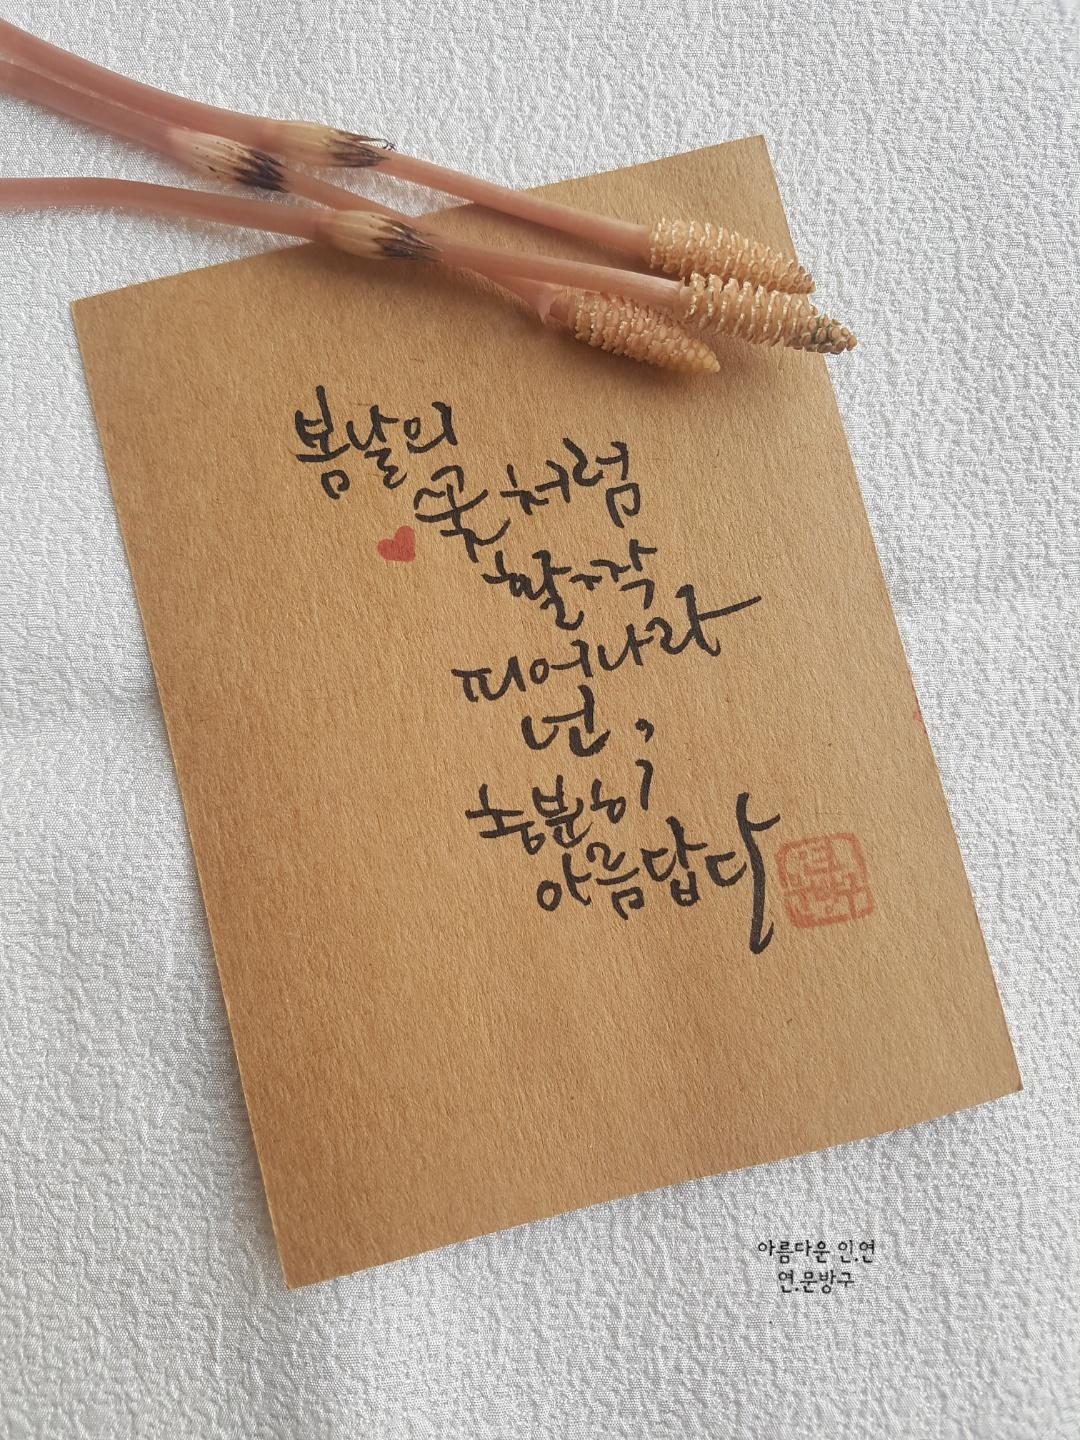 봄날의
꽃처럼
활짝
피어나라
넌,
충분히
아름답다
아름다운 인.연
연.문방구